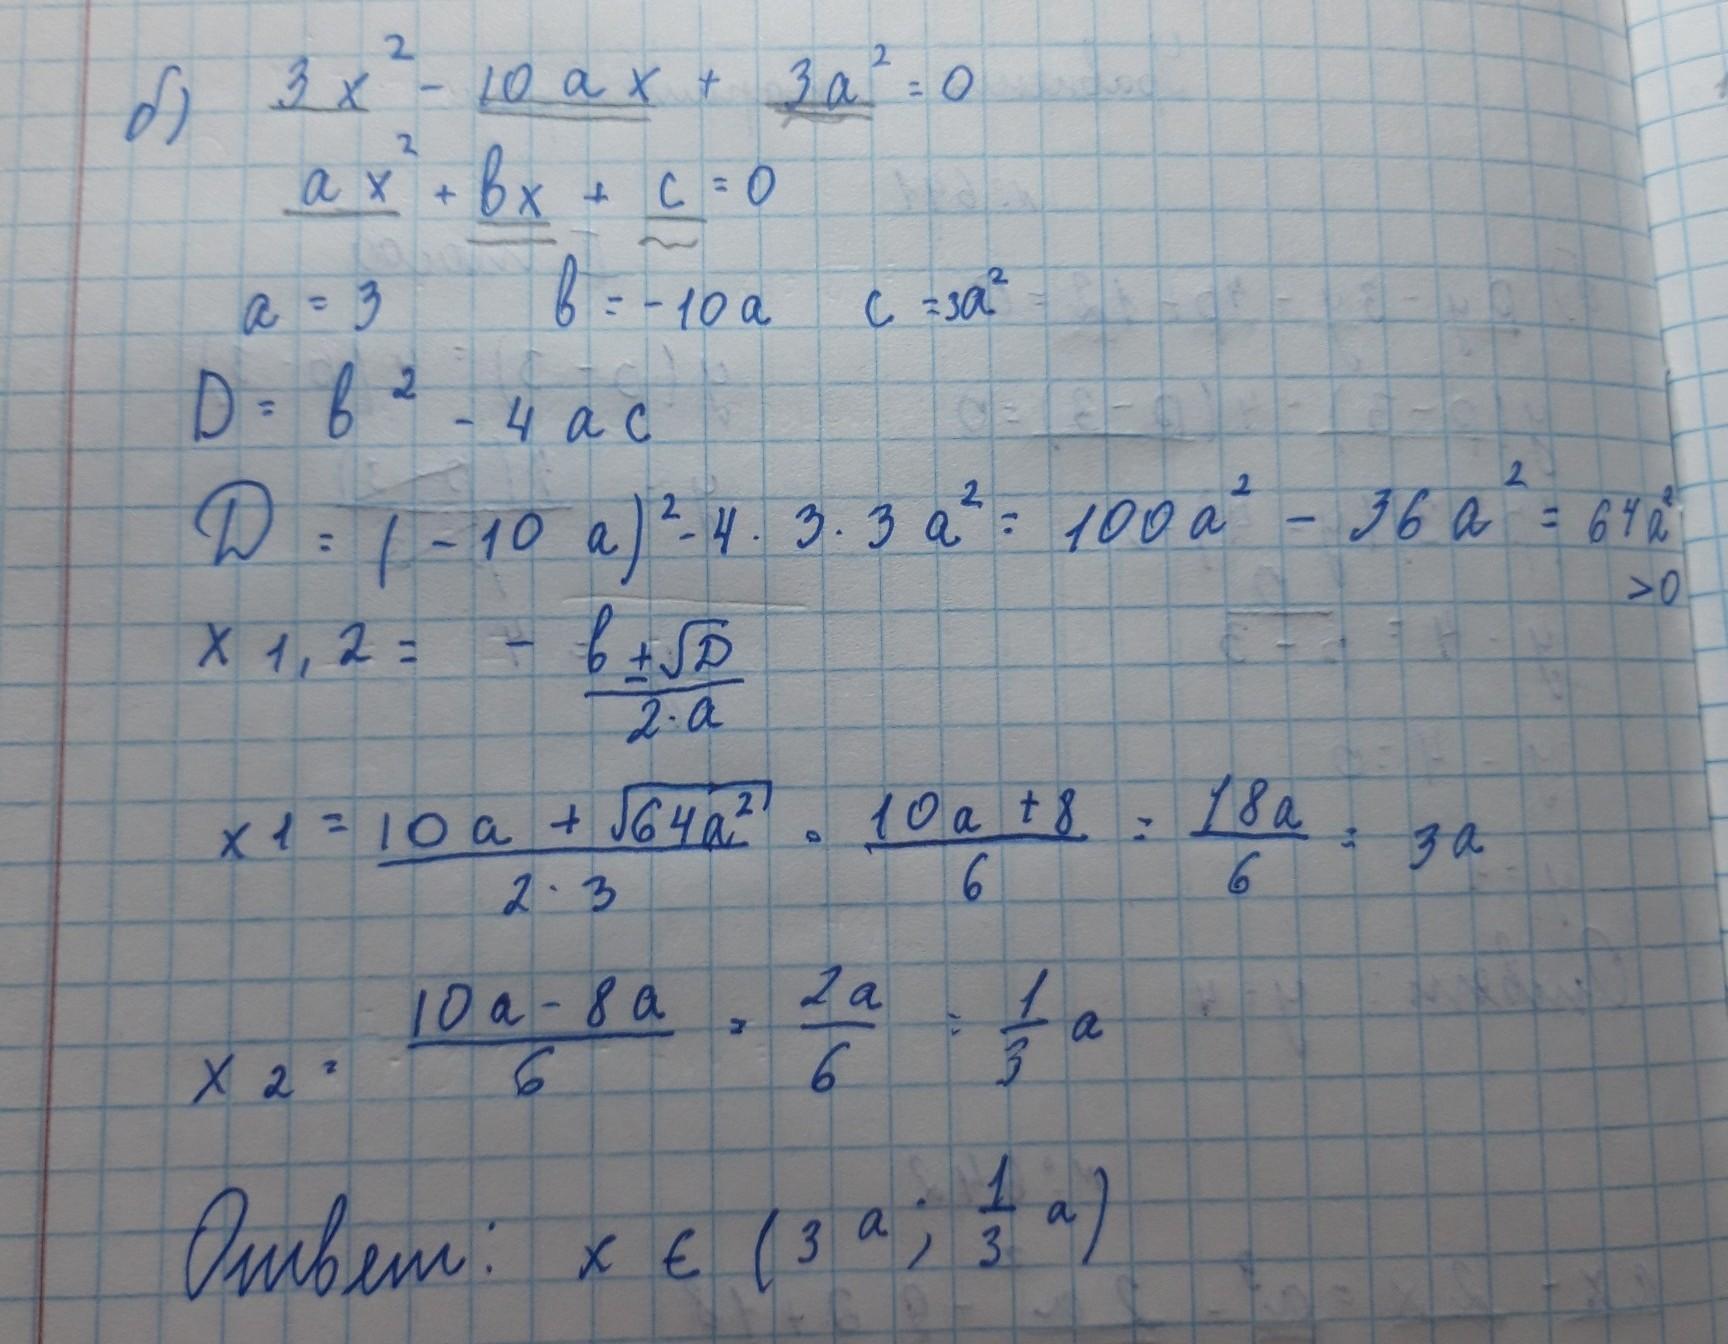 б) 3x² - 10ax + 3a² = 0
ax² + bx + c = 0
a = 3 b = -10a c = 3a²
D = b² - 4ac
D = (-10a)² - 4 · 3 · 3a² = 100a² - 36a² = 64a² > 0
x 1,2 = - b ± √D / 2·a
x1 = 10a + √64a² / 2·3 = 10a + 8 / 6 = 18a / 6 = 3a
x2 = 10a - 8a / 6 = 2a / 6 = 1/3 a
Ответ: x ∈ (3a; 1/3 a)